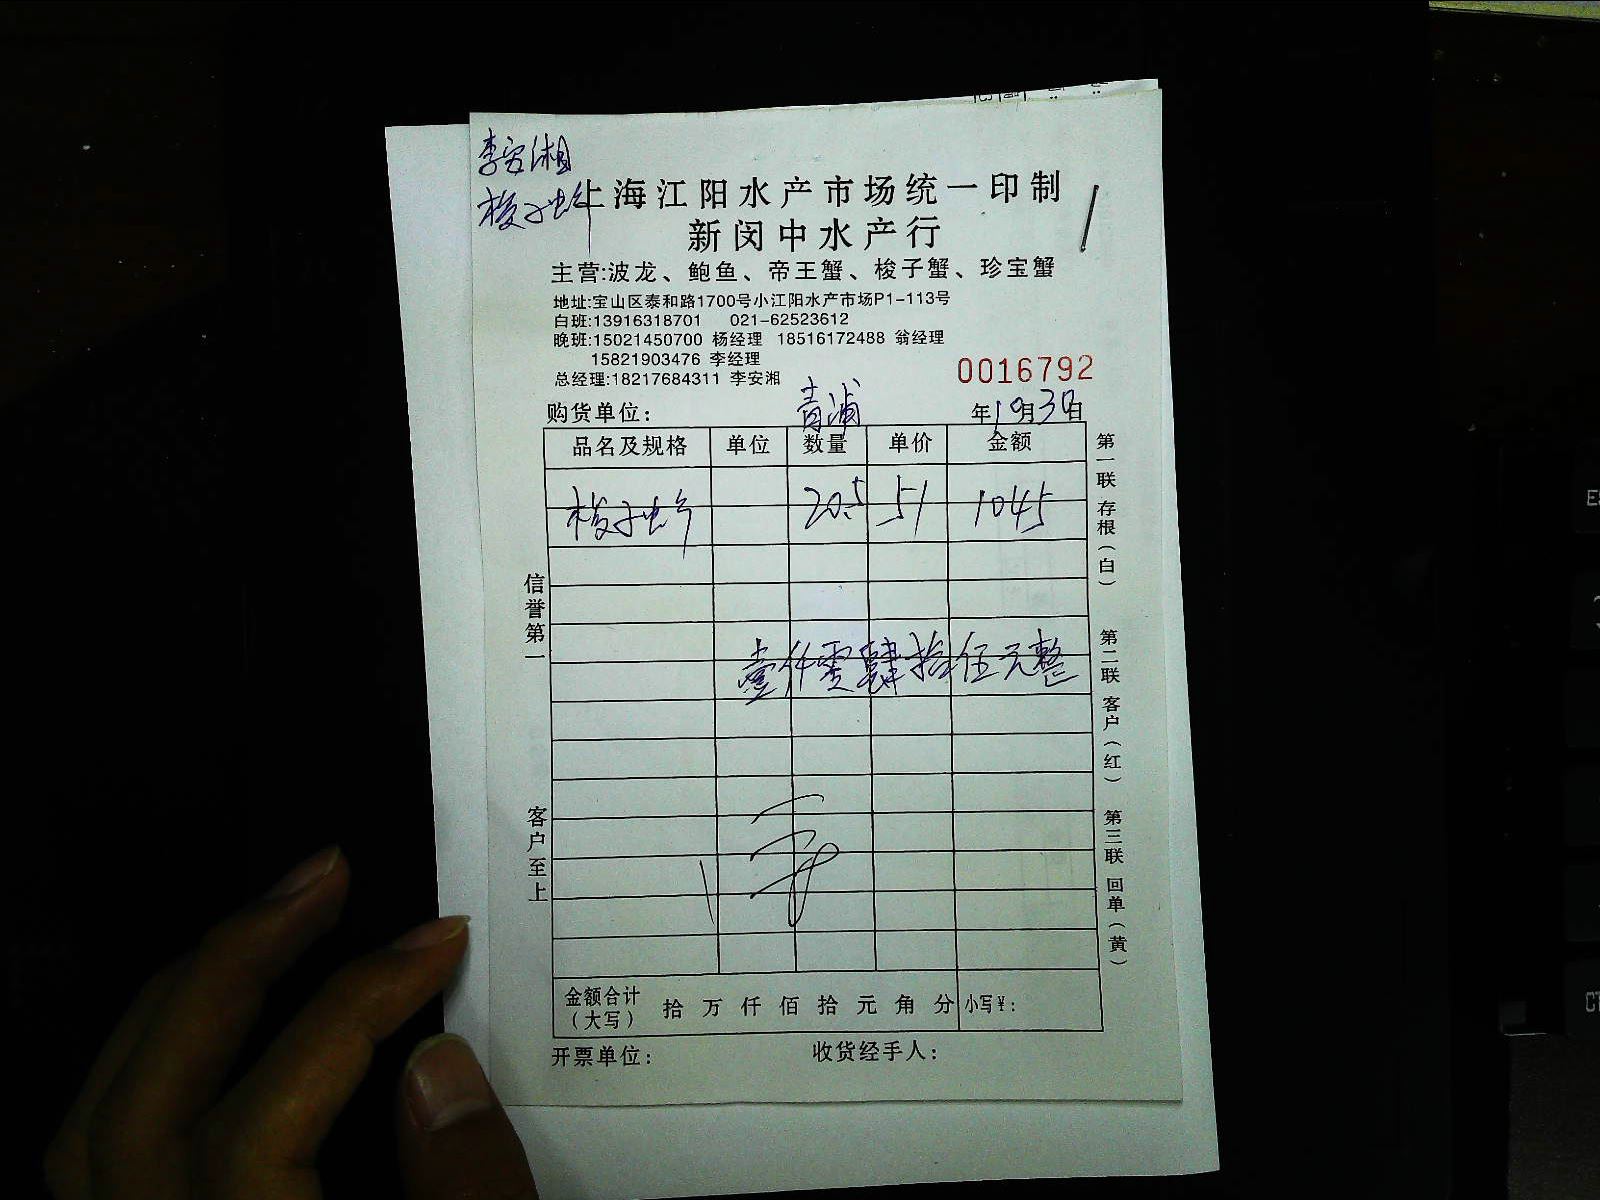 李安湘
梭子蟹
上海江阳水产市场统一印制
新闵中水产行
主营:波龙、鲍鱼、帝王蟹、梭子蟹、珍宝蟹
地址:宝山区泰和路1700号小江阳水产市场P1-113号
白班:13916318701 021-62523612
晚班:15021450700 杨经理 18516172488 翁经理
15821903476 李经理
总经理:18217684311 李安湘
0016792
购货单位: 青浦 年10月30日
品名及规格 单位 数量 单价 金额
梭子蟹 20.5 51 1045
壹仟零肆拾伍元整
金额合计(大写) 拾 万 仟 佰 拾 元 角 分 小写¥:
开票单位: 收货经手人:
信誉第一
客户至上
第一联 存根(白)
第二联 客户(红)
第三联 回单(黄)